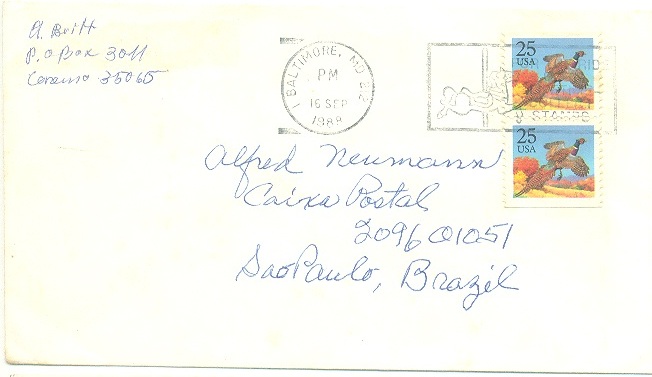 A. Britt
P.O Box 3011
35065
BALTIMORE, MD 212
PM
16 SEP
1988
STAMPS
25
USA
25
USA
Alfred Neumann
Caixa Postal
2096 01051
Sao Paulo, Brazil